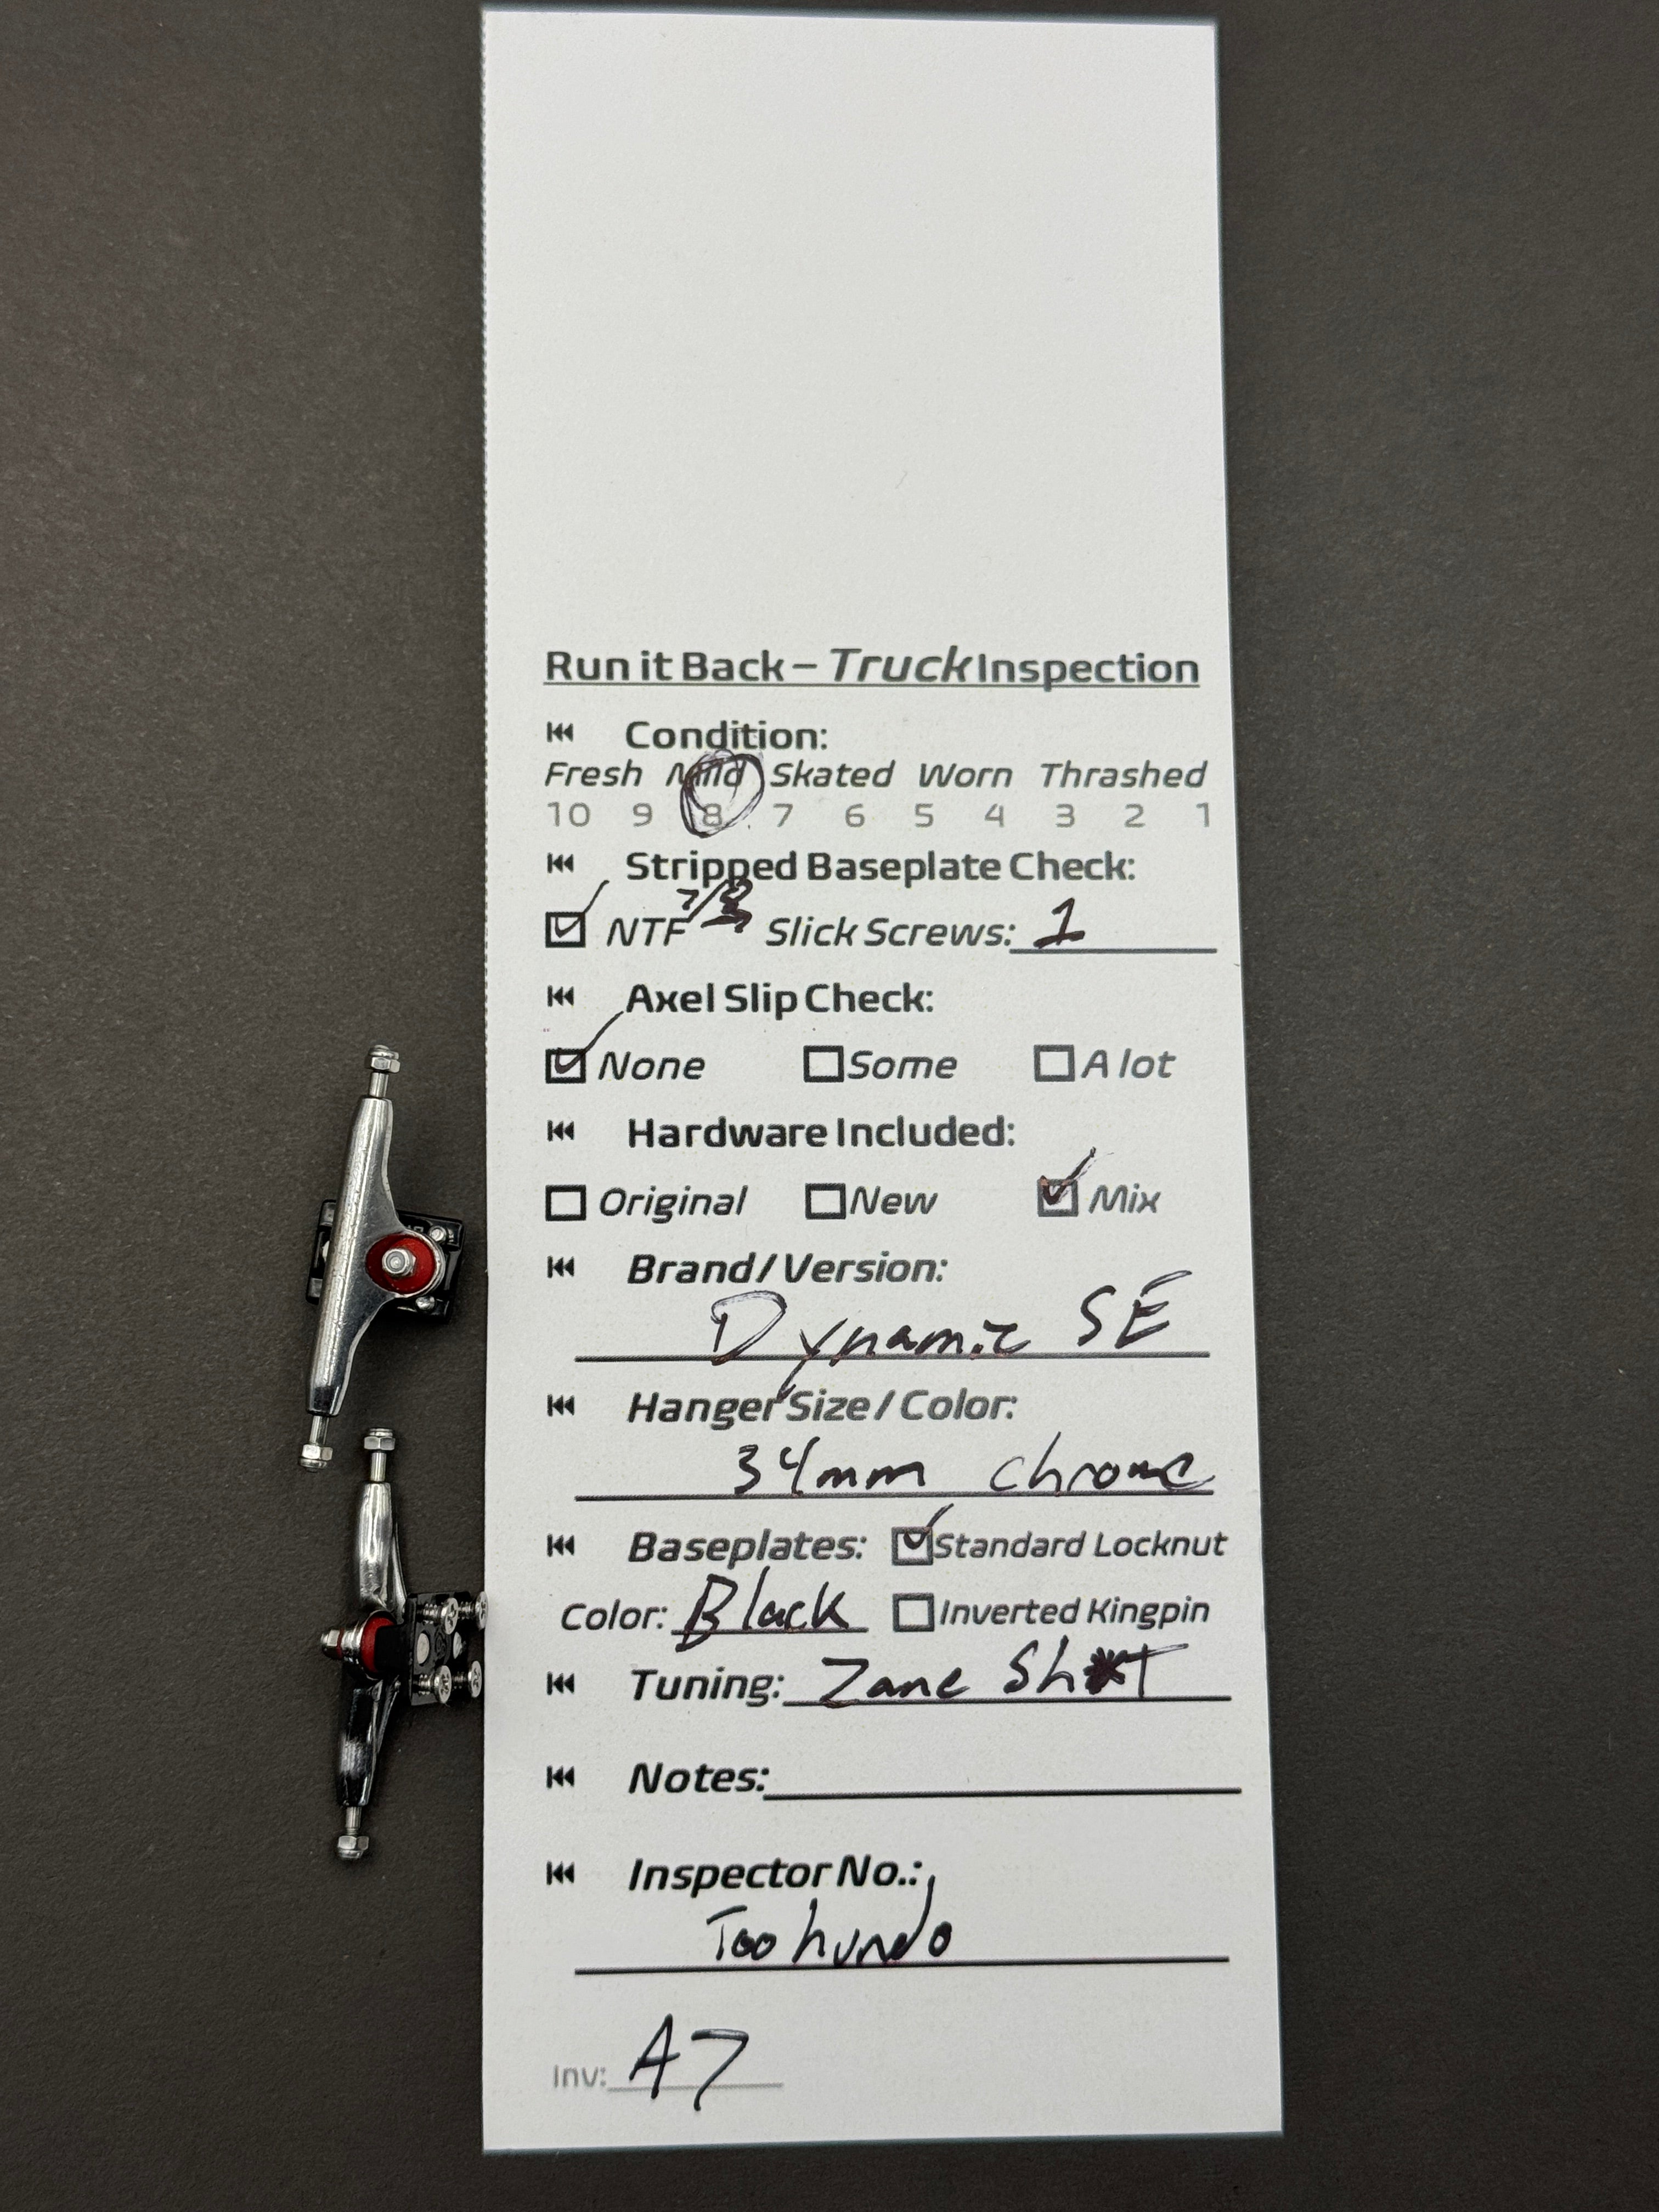 Run it Back – Truck Inspection
Condition:
Fresh Mild Skated Worn Thrashed
10 9 8 7 6 5 4 3 2 1
Stripped Baseplate Check:
NTF 7/8 Slick Screws: 1
Axel Slip Check:
None Some A lot
Hardware Included:
Original New Mix
Brand/Version:
Dynamic SE
Hanger Size / Color:
34mm chrome
Baseplates: Standard Locknut
Color: Black Inverted Kingpin
Tuning: Zane Sh*T
Notes:
Inspector No.:
Too hundo
Inv: A7